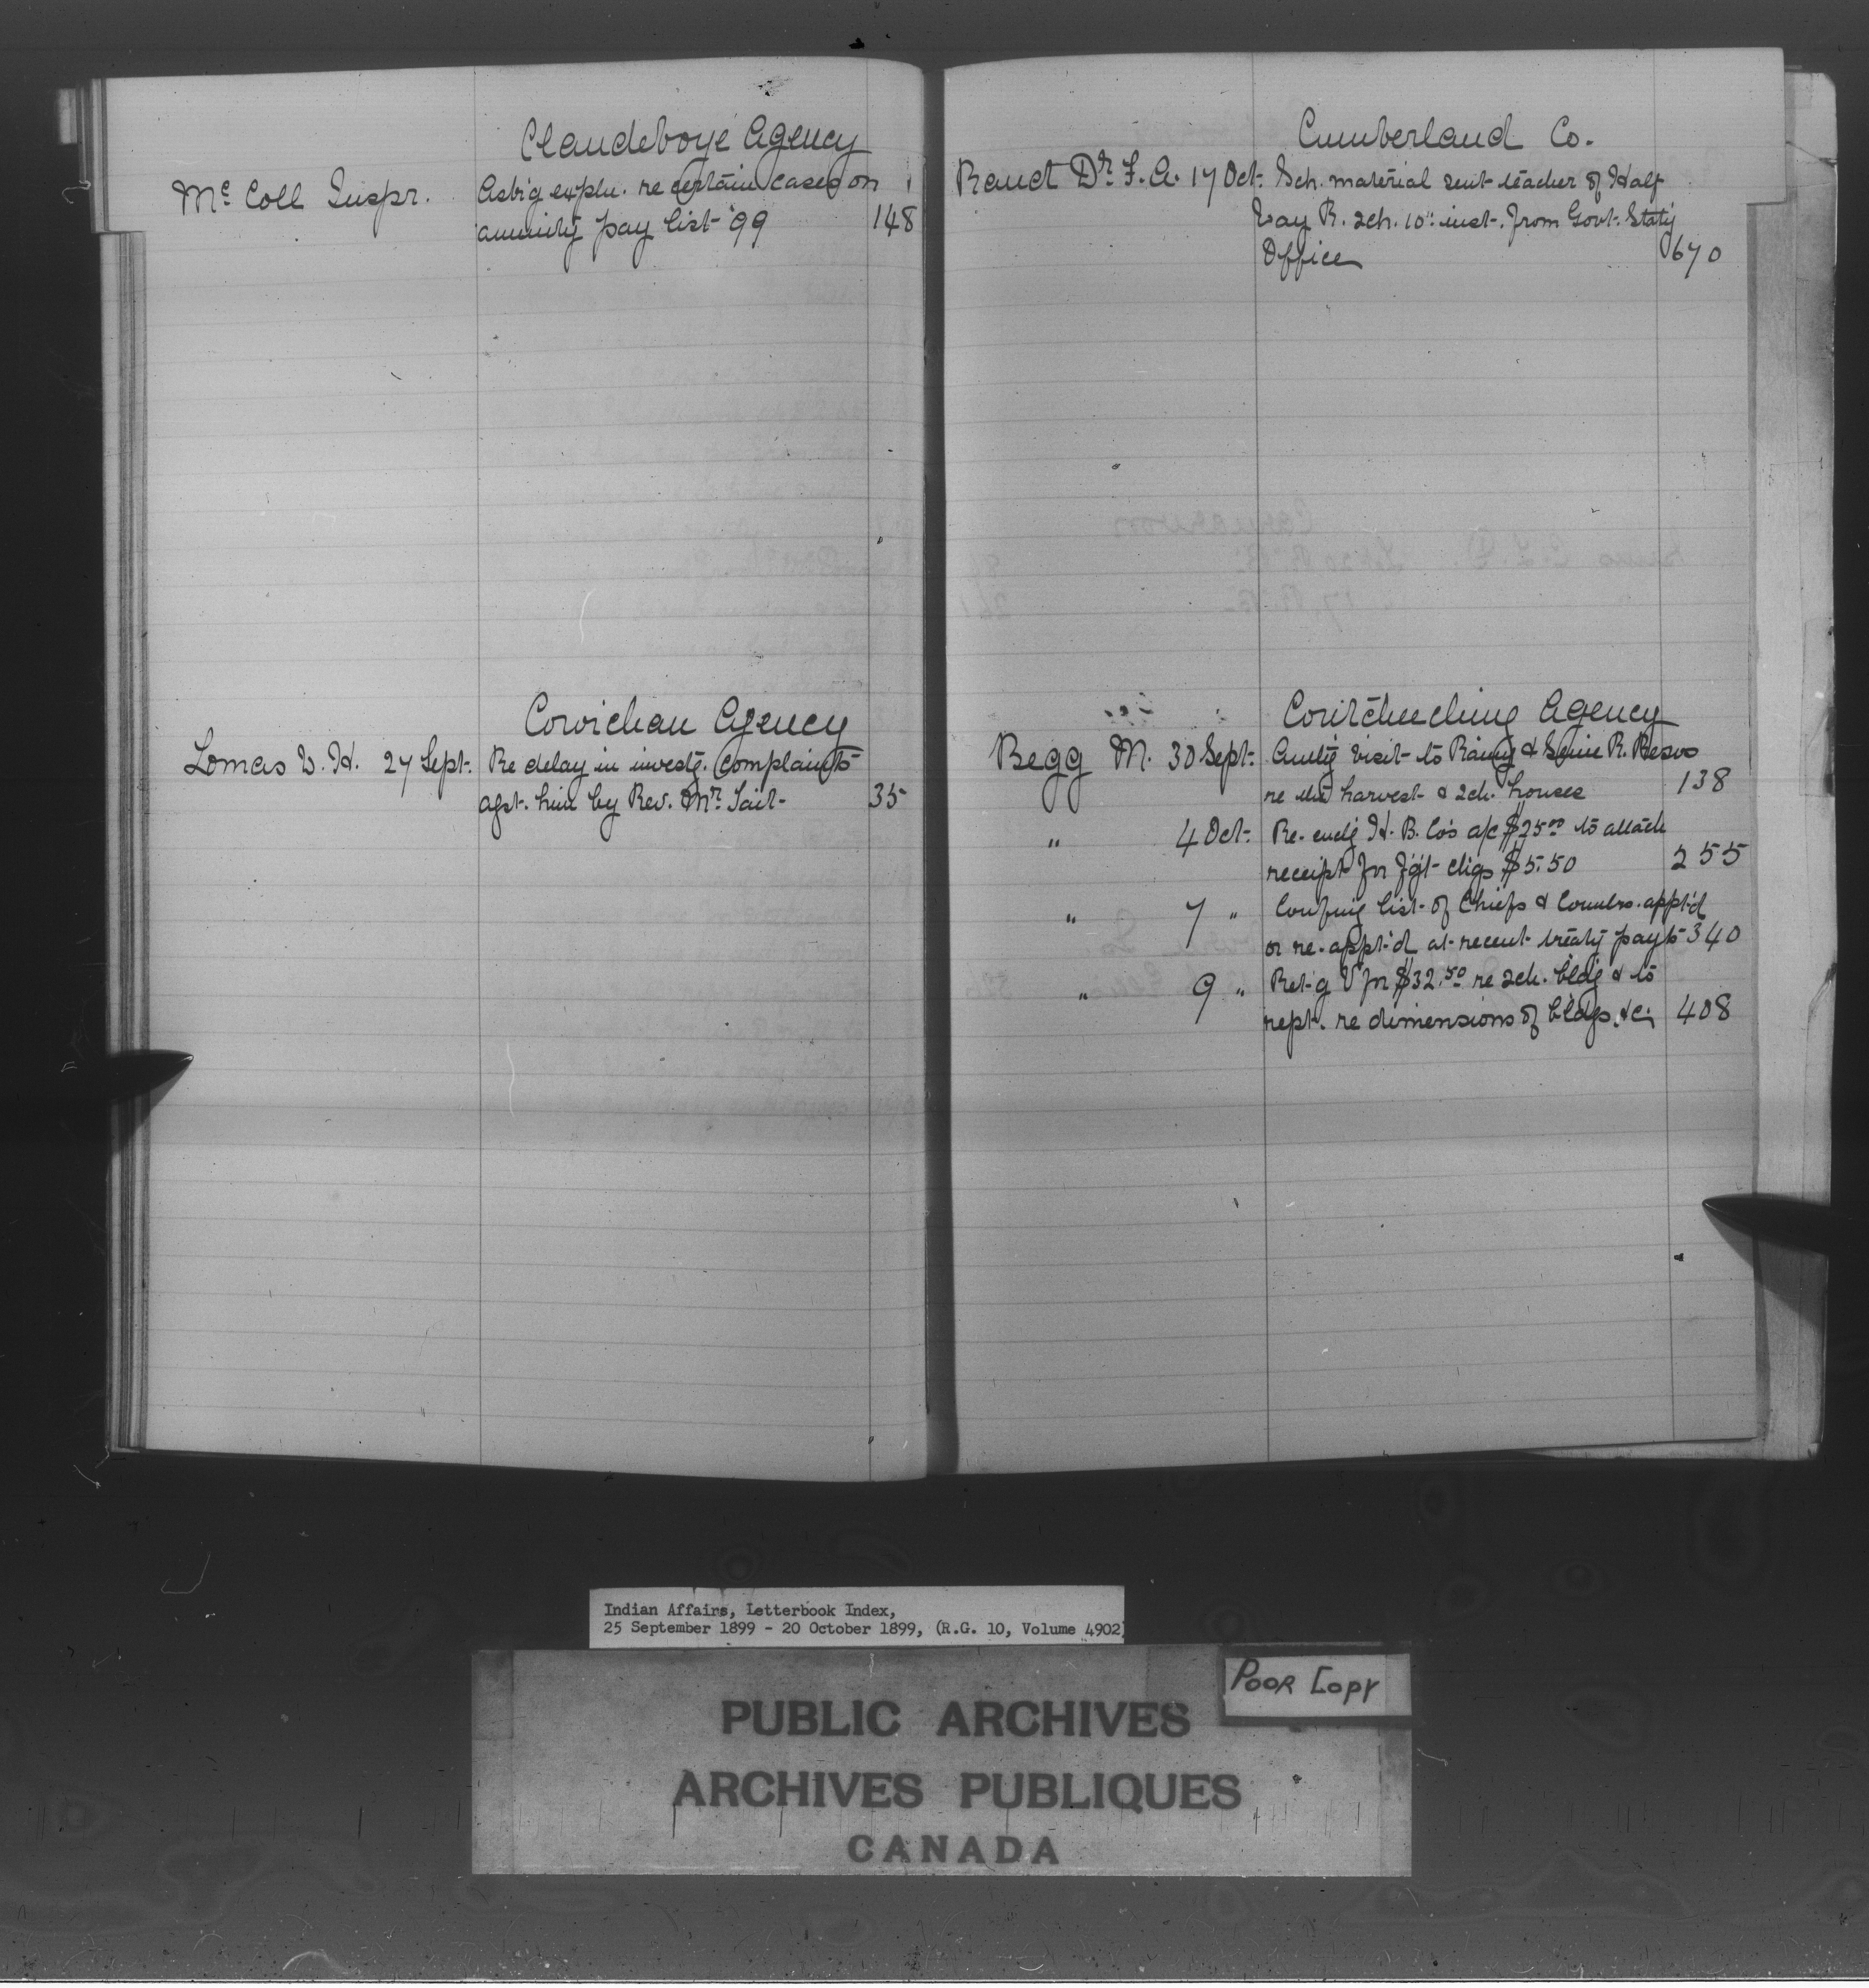 Clandeboye Agency
Mc Coll Inspr. Ask'g expln. re certain cases on
annuity pay list '99 148
Cowichan Agency
Lomas W. H. 27 Sept. Re delay in investg. complaints
agst. him by Rev. Mr. Tait 35
Cumberland Co.
Rand Dr. F. A. 17 Oct. Sch. material sent teacher of Half
Way R. sch. 10" inst. from Govt. Stat'y
Office 670
Coutcheeching Agency
Begg M. 30 Sept. visit to Rainy & Seine R. Resvs
re harvest & sch. houses 138
" 4 Oct. Re-encl'g H. B. Co's a/c $25.00 to attach
receipt for fg't chgs $5.50 255
" 7 " Confm'g list of Chiefs & Counlrs. appt'd
or re-appt'd at recent treaty payts 340
" 9 " Ret'g V for $32.50 re sch. bldg & to
rept. re dimensions of bldgs. &c. 408
Indian Affairs, Letterbook Index,
25 September 1899 - 20 October 1899, (R.G. 10, Volume 4902)
POOR COPY
PUBLIC ARCHIVES
ARCHIVES PUBLIQUES
CANADA